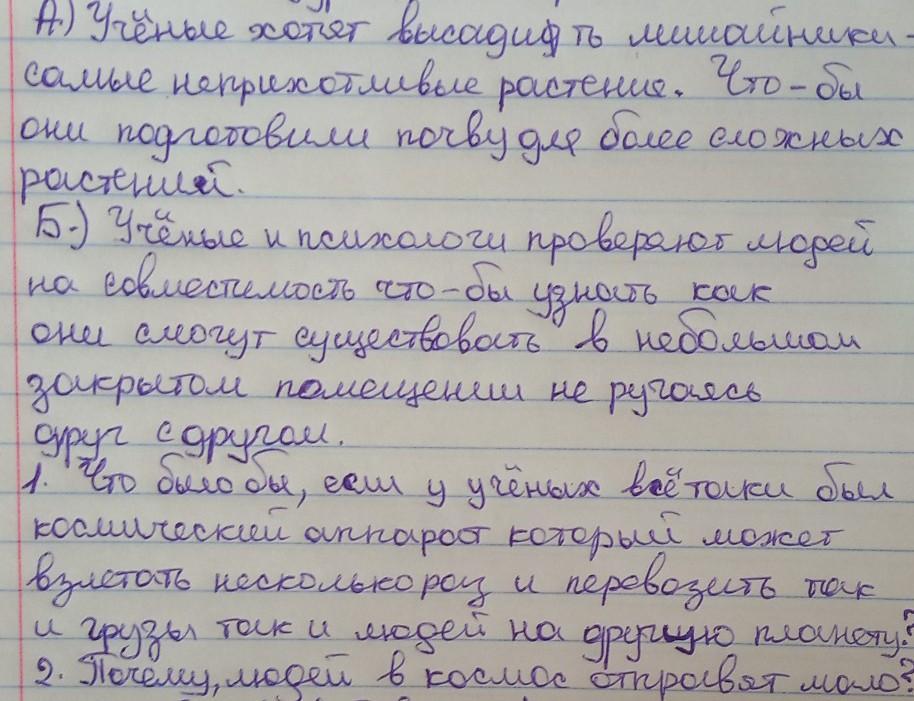 А.) Учёные хотят высадить лишайники -
самые неприхотливые растение. Что-бы
они подготовили почву для более сложных
растений.
Б.) Учёные и психологи проверяют людей
на совместимость что-бы узнать как
они смогут существовать в небольшом
закрытом помещении не ругаясь
друг с другом.
1. Что было бы, если у учёных всё таки был
космический аппарат который может
взлетать несколько раз и перевозить так
и грузы так и людей на другую планету?
2. Почему, людей в космос отправят мало?